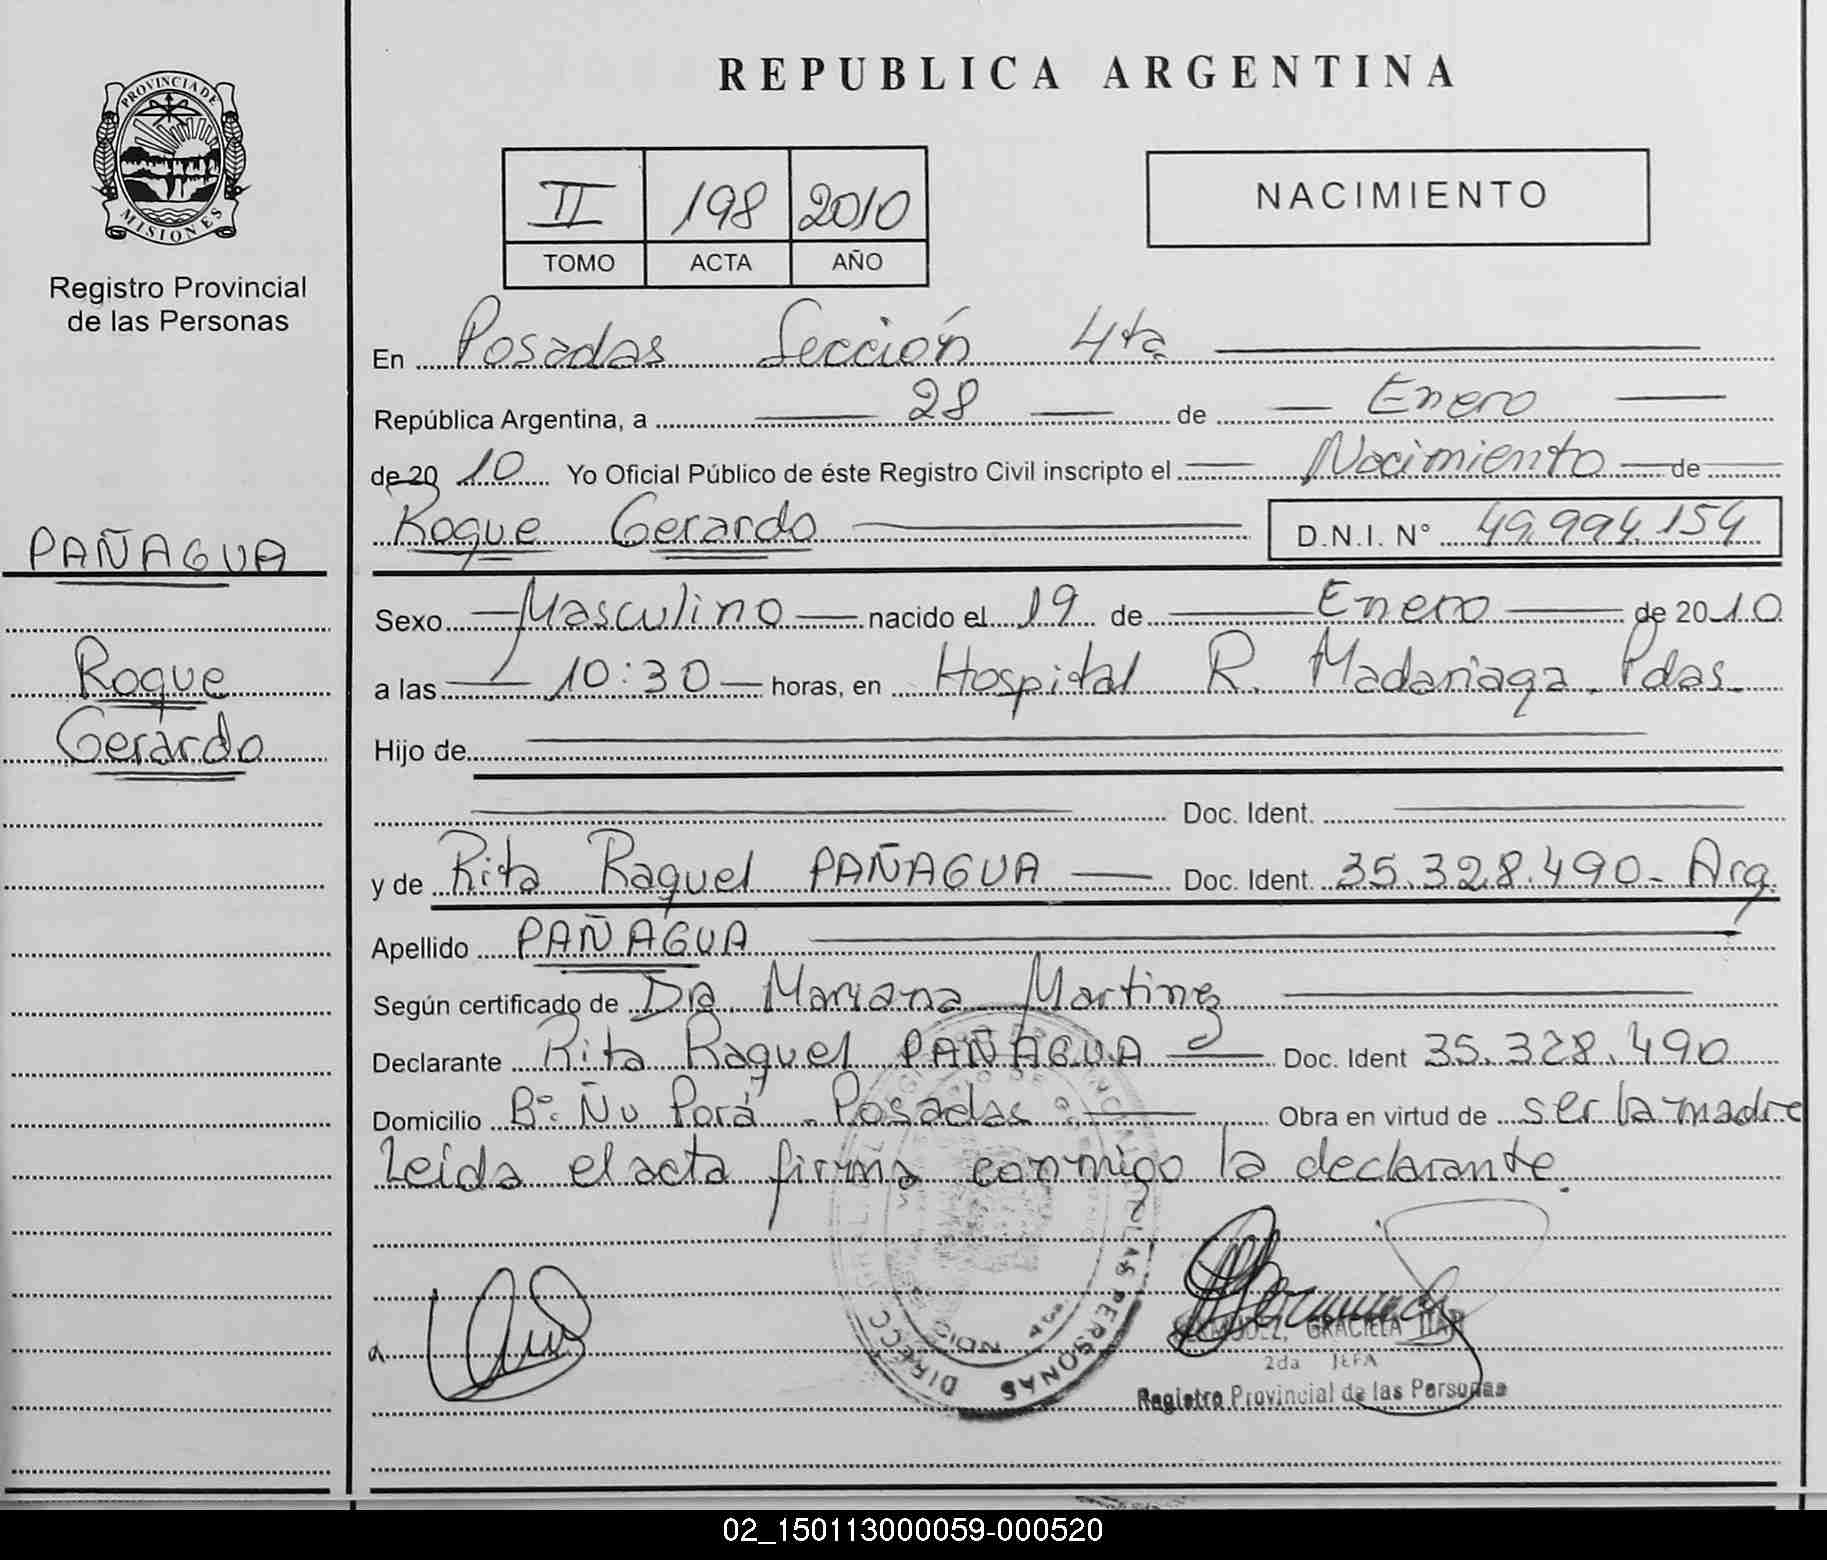 REPUBLICA ARGENTINA
PROVINCIA DE
MISIONES
Registro Provincial
de las Personas
II 198 2010
TOMO ACTA AÑO
NACIMIENTO
En Posadas Sección 4ta
República Argentina, a 28 de Enero
de 20 10 Yo Oficial Público de éste Registro Civil inscripto el Nacimiento de
Roque Gerardo D.N.I. N° 49.994.154
PAÑAGUA
Roque
Gerardo
Sexo Masculino nacido el 19 de Enero de 2010
a las 10:30 horas, en Hospital R. Madariaga. Pdas.
Hijo de
Doc. Ident.
y de Rita Raquel PAÑAGUA Doc. Ident. 35.328.490- Arg.
Apellido PAÑAGUA
Según certificado de Dra. Mariana Martinez
Declarante Rita Raquel PAÑAGUA Doc. Ident 35.328.490
Domicilio B°. Ñu Porá - Posadas Obra en virtud de ser la madre
Leída el acta firma conmigo la declarante.
GRACIELA
2da JEFA
Registro Provincial de las Personas
PERSONAS
02_150113000059-000520